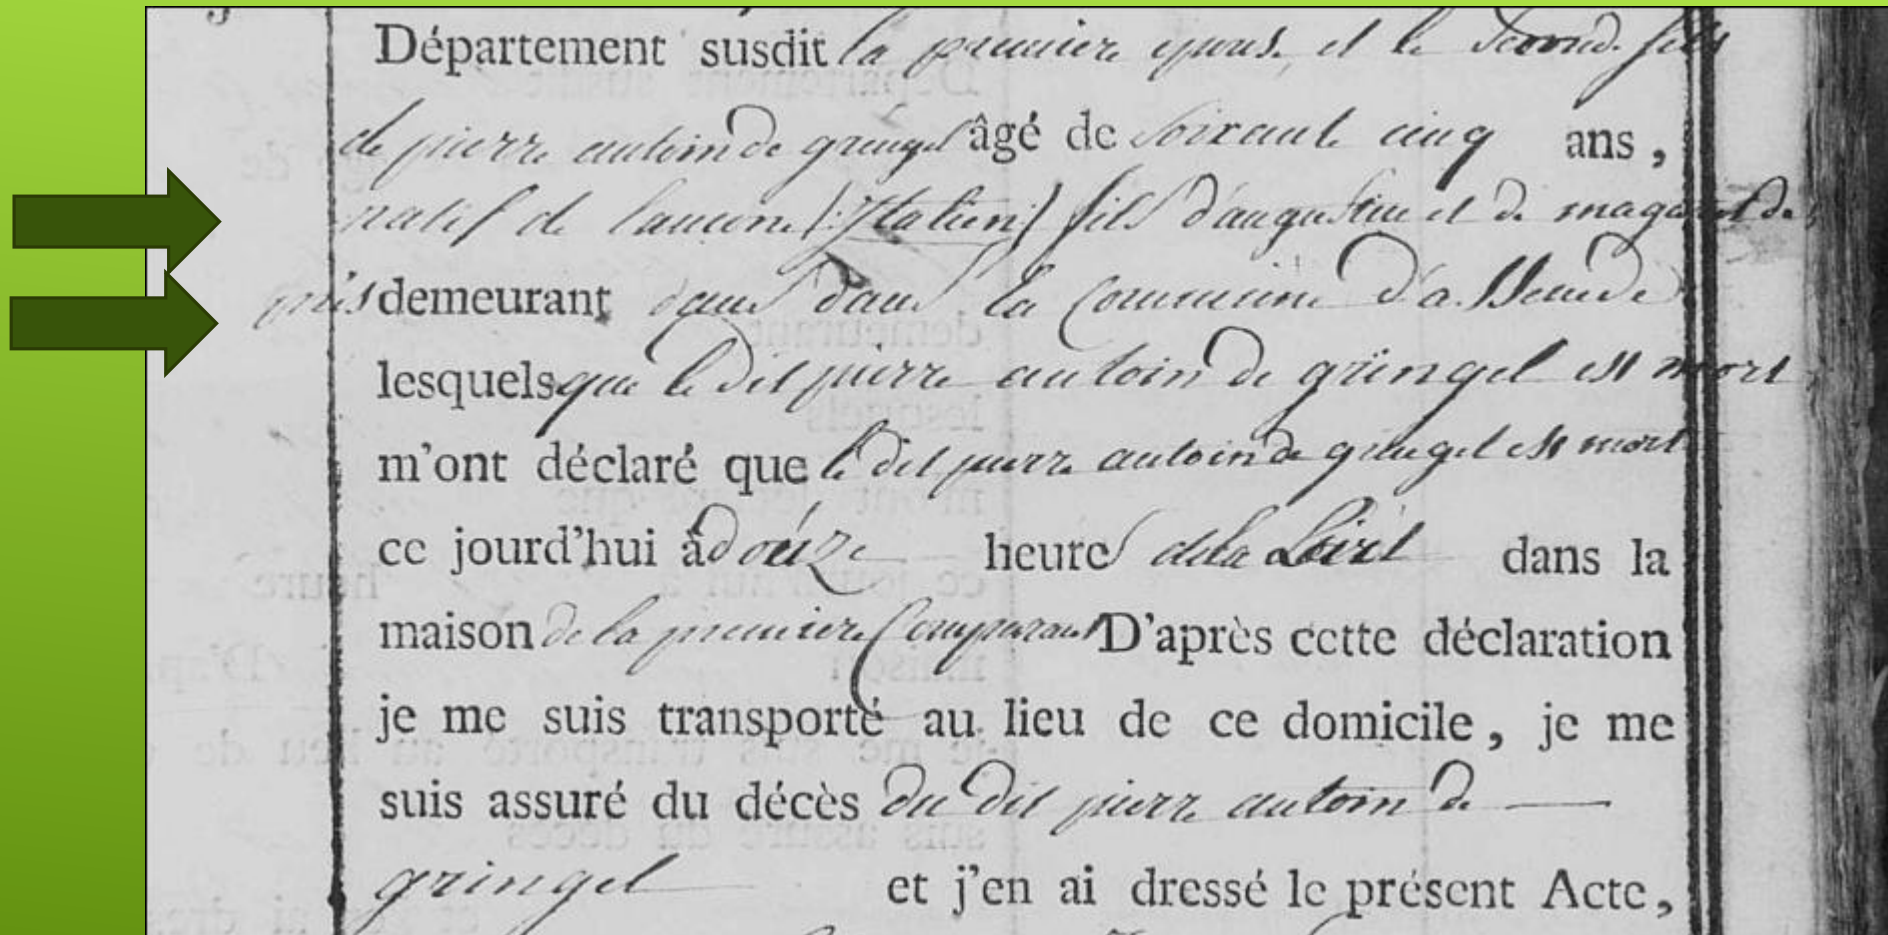 Département susdit la premier epous. et le second fils
de pierre antoin de gringel âgé de soixant cinq ans,
natif de lancone (:Italien:) fils d'augustin et de magarit de
demeurant dans dans la Commune d'assenede
lesquels que le dit pierre antoin de gringel est mort
m'ont déclaré que le dit pierre antoin de gringel est mort
ce jourd'hui à douze heures dela Soirèt dans la
maison de la premiere Comparant D'après cette déclaration
je me suis transporté au lieu de ce domicile, je me
suis assuré du décès du dit pierr antoin de
gringel et j'en ai dressé le présent Acte,